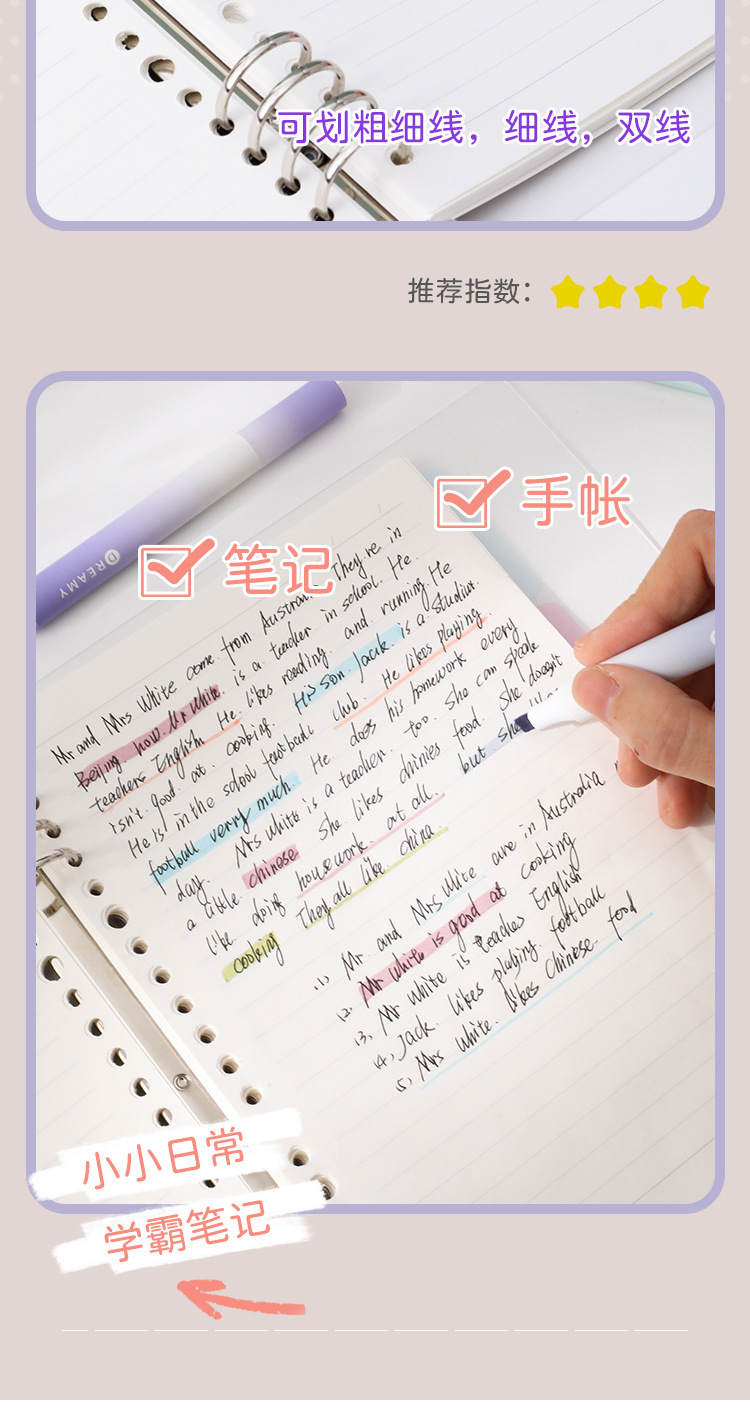 可划粗细线，细线，双线
推荐指数：
DREAMY
手帐
笔记
Mr and Mrs White come from Australia They're in
Beijing now. Mr White. is a teacher in school. He
teachers English He likes reading. and running. He
isn't good at cooking. His son Jack is a student.
He is in the school football club. He likes playing
football verry much. He does his homework every
day. Mrs White is a teacher. too. She can speak
a little chinese She likes chinies food. She doesn't
like doing housework. at all. but she
cooking They all like china.
(1) Mr and Mrs White are in Australia
(2. Mr White is good at cooking
(3, Mr White is teacher English
(4, Jack. likes playing. football
(5, Mrs White. likes Chinese food
小小日常
学霸笔记